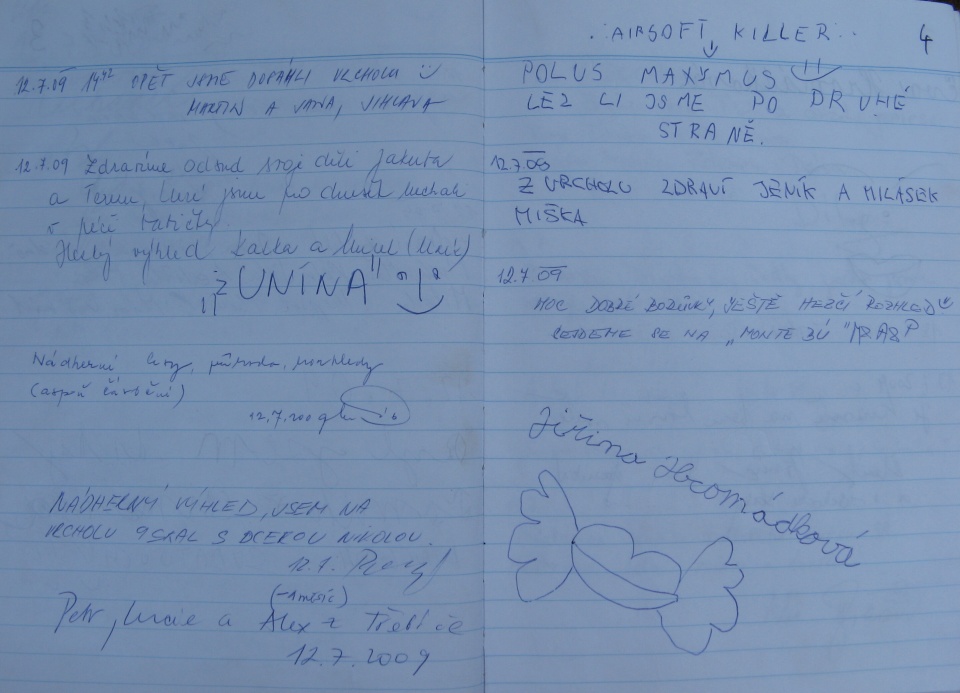 12.7.09 14⁴² OPĚT JSME DOBÁHLI VRCHOLU
MARTIN A JANA, JIHLAVA
12.7.09 Zdravíme odsud svoji děti Jakuba
a Terezu, které jsme po chvíli nechali
v péči babičky.
Hezký výhled Katka a
"ŽUNÍNA"
Nádherné lesy, příroda, pohledy
12.7.2009
NÁDHERNÝ VÝHLED, JSEM NA
VRCHOLU 9 SKAL S DCEROU NIKOLOU.
12.7.
(-1 měsíc)
Petr, Lucie a Alex z Třebíče
12.7.2009
4
AIRSOFT KILLER
POLUS MAXYMUS
LEZLI JSME PO DRUHÉ
STRANĚ.
12.7 09
Z VRCHOLU ZDRAVÍ JENÍK A MILÁSEK
MIŠKA
12.7.09
MOC DOBRÉ BORŮVKY, JEŠTĚ HEZČÍ ROZHLED
SEJDEME SE NA „MONTE BÚ"
Jiřina Hromádková